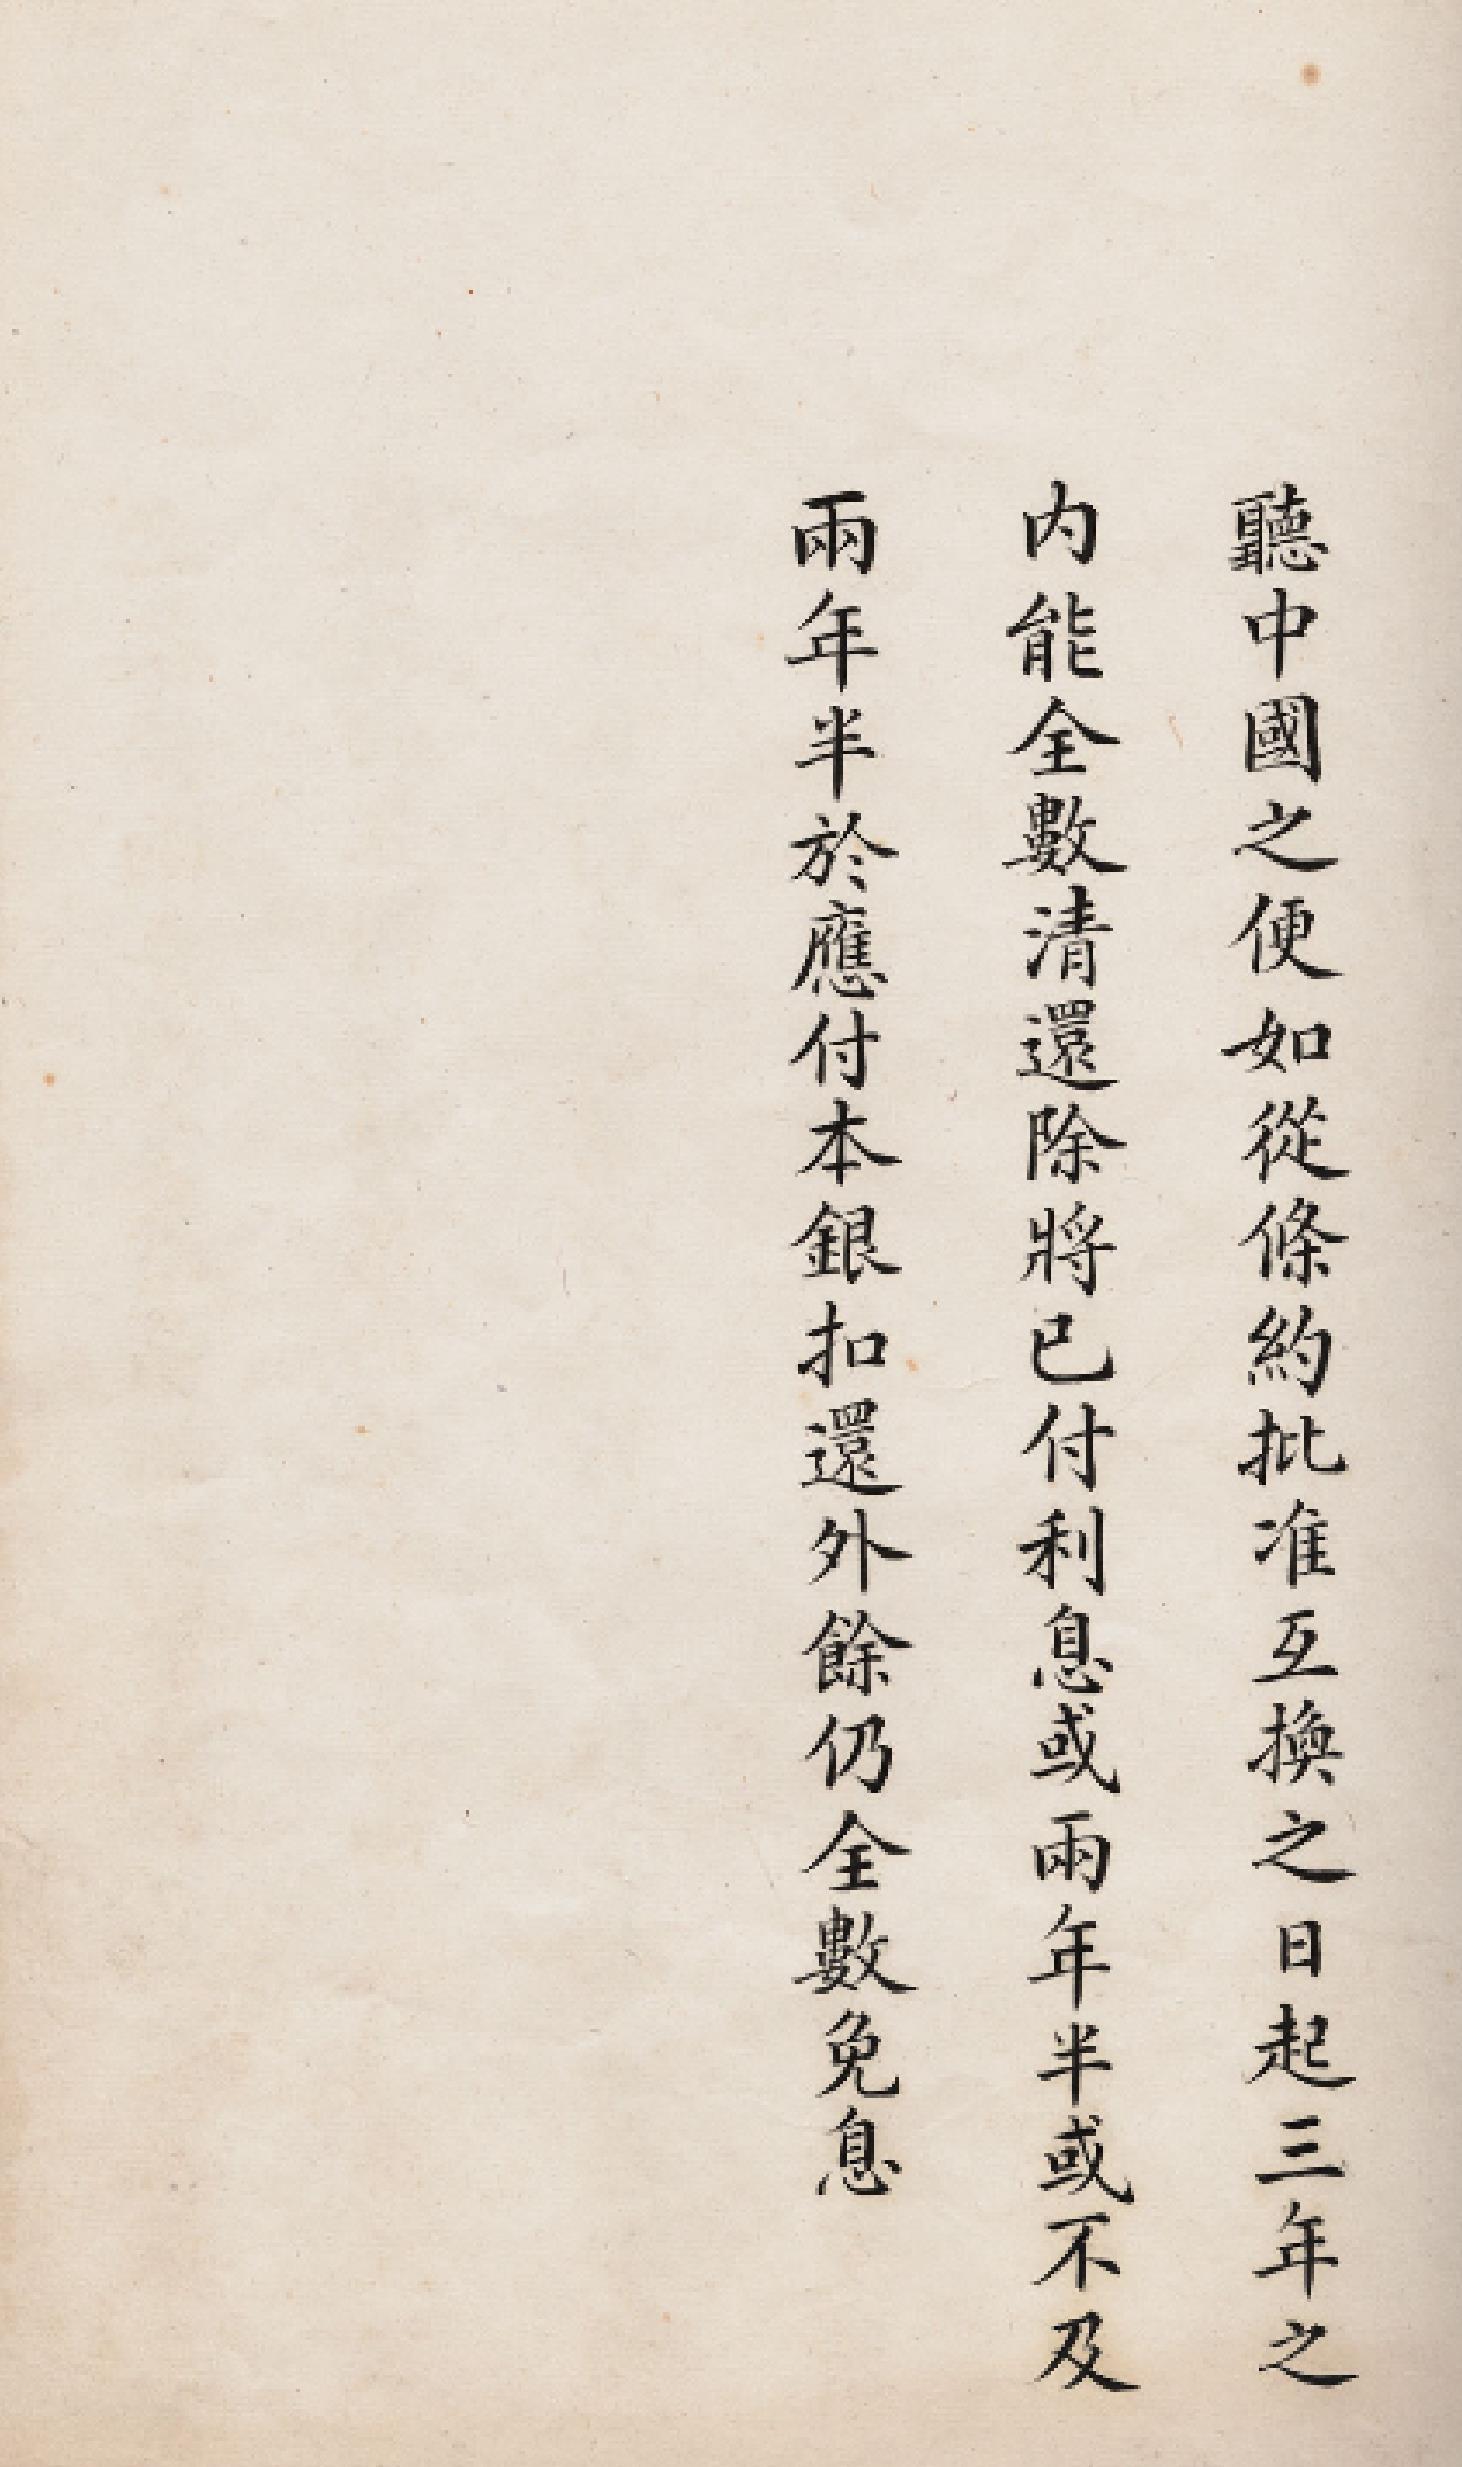 聽中國之便如從條約批准互換之日起三年之
内能全數清還除將已付利息或兩年半或不及
兩年半於應付本銀扣還外餘仍全數免息